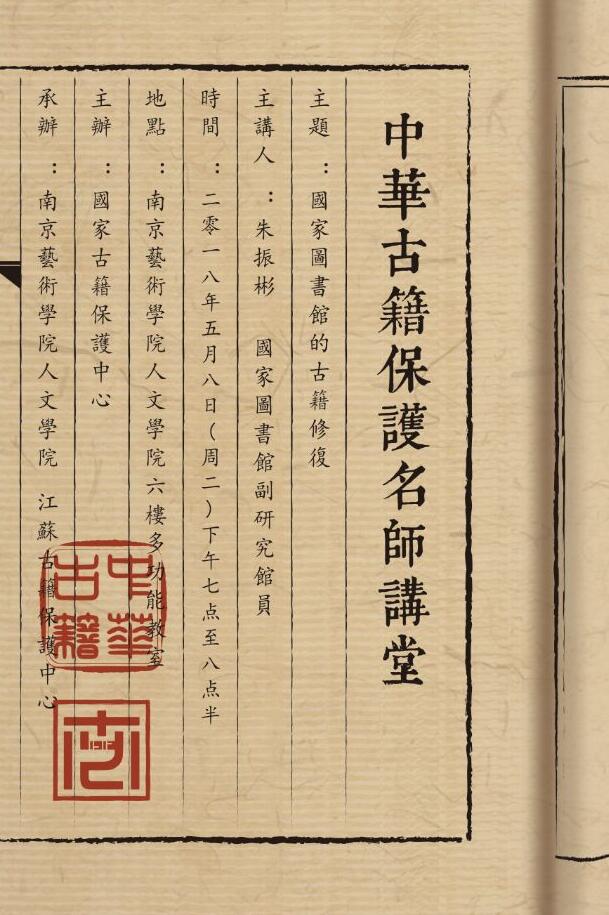 中華古籍保護名師講堂
主題：國家圖書館的古籍修復
主講人：朱振彬 國家圖書館副研究館員
時間：二零一八年五月八日(周二)下午七点至八点半
地點：南京藝術學院人文學院六樓多功能教室
主辦：國家古籍保護中心
承辦：南京藝術學院人文學院 江蘇古籍保護中心
中華古籍
1912